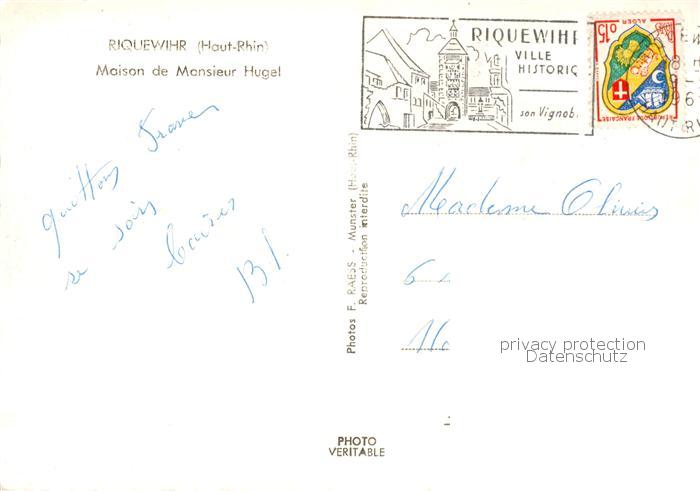 RIQUEWIHR (Haut-Rhin)
Maison de Monsieur Hugel
quittons
ce soir
Baisers
RIQUEWIHR
VILLE
HISTORIQ
son Vignob
0,15
ALGER
REPUBLIQUE FRANCAISE
Photos F. RAESS - Munster (Haut-Rhin)
Reproduction interdite
Madame
6
privacy protection
Datenschutz
PHOTO
VERITABLE